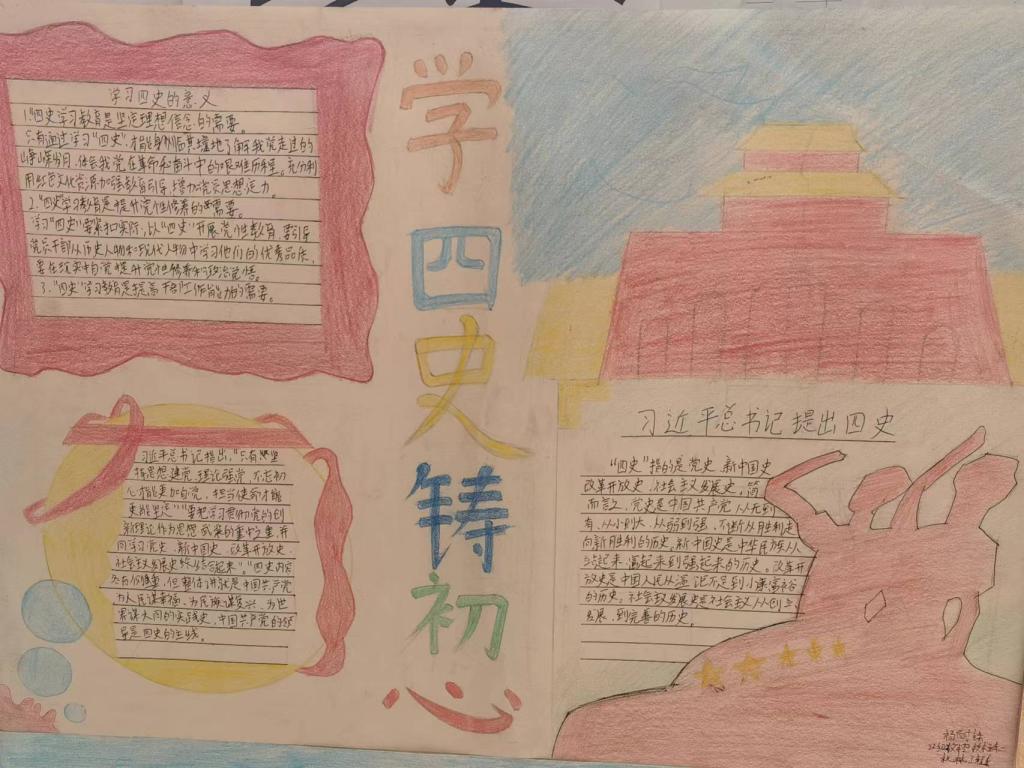 学习四史的意义
1."四史学习教育是坚定理想信念的需要。
只有通过学习"四史",才能身临其境地了解我党走过的
峥嵘岁月,体会我党在革命和奋斗中的艰难历程。充分利
用红色文化资源加强教育引导,增加党员思想定力。
2."四史学习教育是提升党性修养的需要。
学习"四史"要紧扣实际,以"四史"开展党性教育,要引导
党员干部从历史人物和现代人物中学习他们的优秀品质,
要在现实中自觉提升党性修养和政治觉悟。
3."四史"学习教育是提高干部工作能力的需要。
学四史铸初心
习近平总书记提出,"只有坚
指思想建党、理论强党,不忘初
心才能更加自觉,担当使命才能
更
"要把学习贯彻党的创
新理论作为思想武装的重中之重,并
同学习党史、新中国史、改革开放史、
社会主义发展史结合起来"。"四史内容
各有侧重,但整体讲就是中国共产党
为人民谋幸福、为民族谋复兴、为世
界谋大同的实践史,中国共产党的领
导是四史的主线。
习近平总书记提出四史
"四史"指的是党史、新中国史
改革开放史、社会主义发展史,简
而言之,党史是中国共产党从无到
有、从小到大、从弱到强、不断从胜利走
向新胜利的历史。新中国史是中华民族从
站起来、富起来到强起来的历史。改革开
放史是中国人民从温饱不足到小康富裕
的历史。社会主义发展史是社会主义从创立、
发展,到完善的历史。